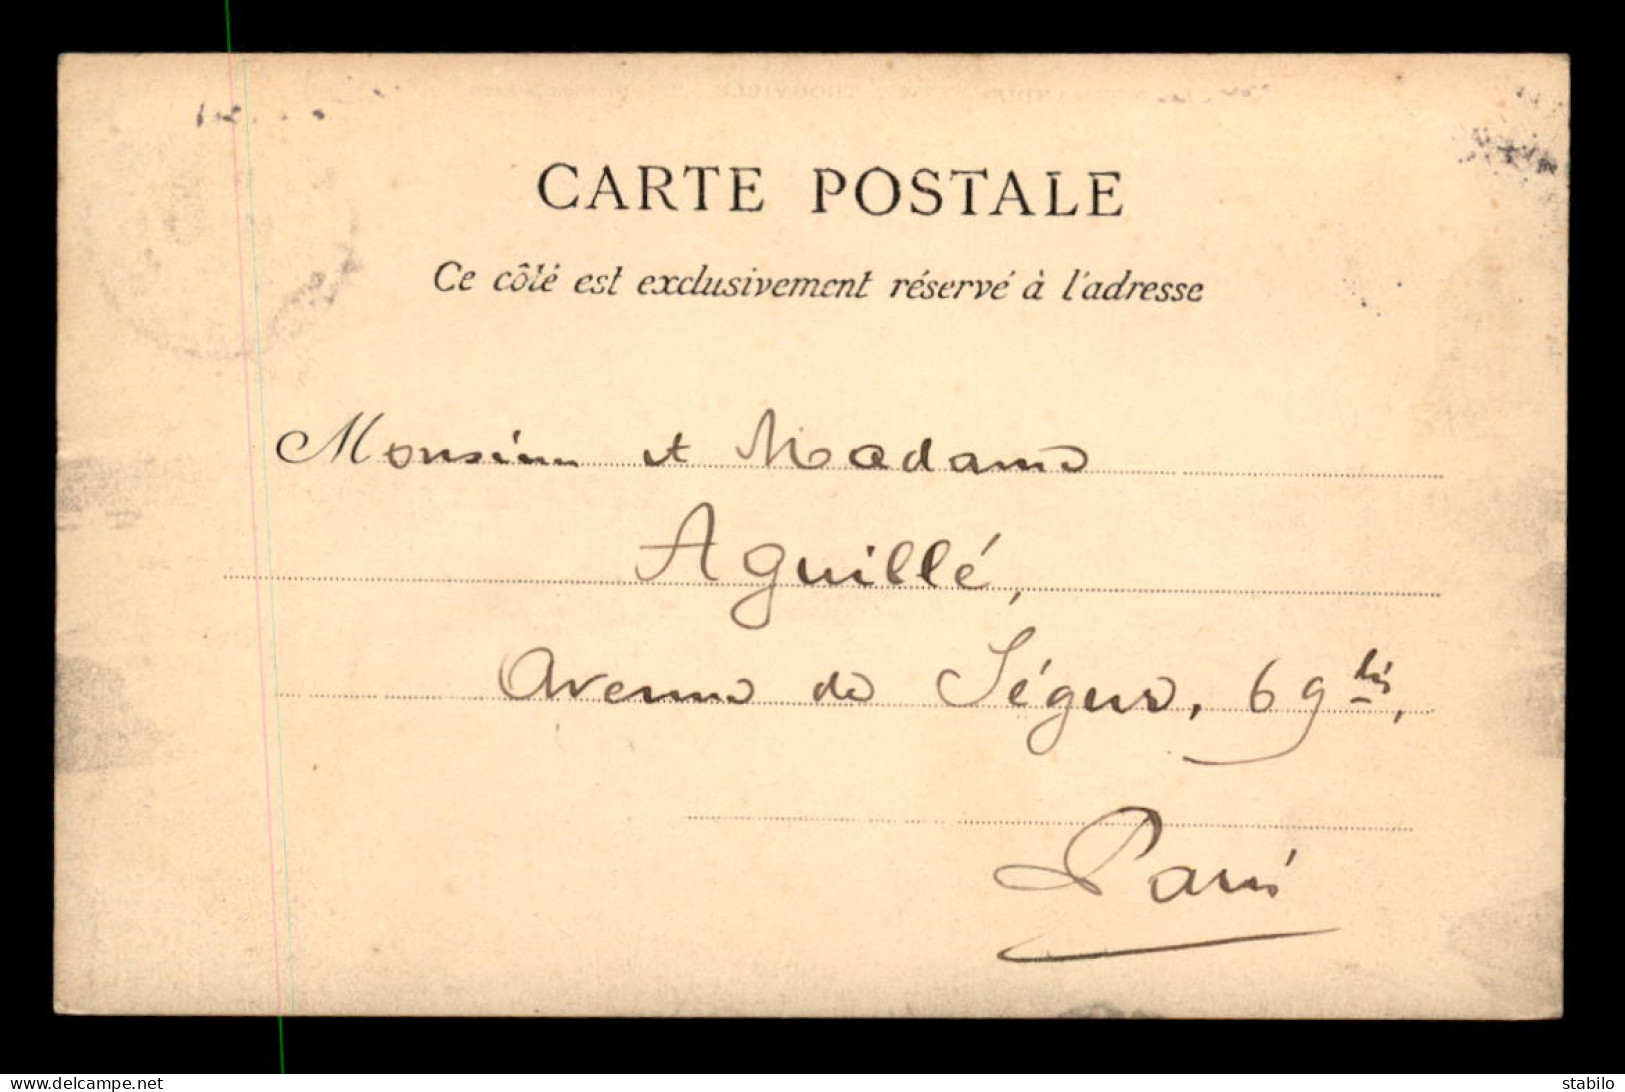 CARTE POSTALE
Ce côté est exclusivement réservé à l'adresse
Monsieur et Madame
Aguillé,
Avenue de Ségur, 69 bis,
Paris
https://www.delcampe.net
stabilo